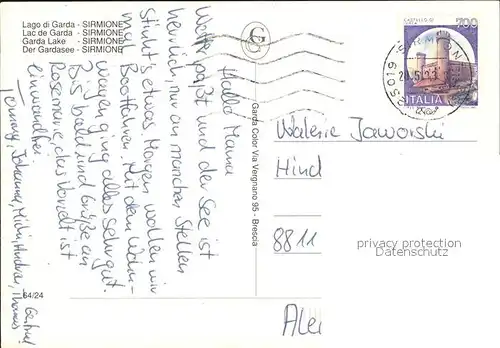 Lago di Garda - SIRMIONE
Lac de Garda - SIRMIONE
Garda Lake - SIRMIONE
Der Gardasee - SIRMIONE
Hallo Mama
Wetter paßt und der See ist
herrlich, nur an manchen Stellen
stinkt's etwas. Morgen wollen wir
mal Bootfahren. Mit dem Wohn-
wagen ging alles sehr gut.
Bis bald und Grüße an
Rosemarie, das Vorzelt ist
einwandfrei.
Johanna, Michi, Andreas, Thomas
Garda Color Via Vergnano 95 - Brescia
64/24
700
ITALIA
25019 SIRMIONE
Valerie Jaworski
Hind
8811
Alei
privacy protection
AnsichtskartenVersand.com